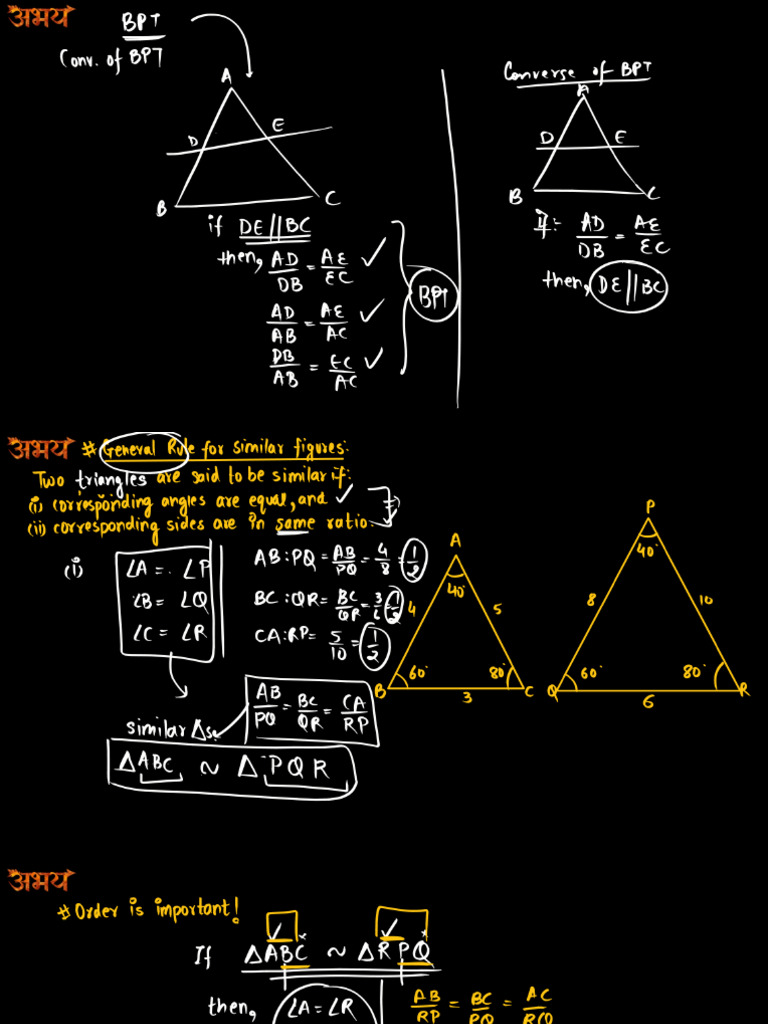 अभय
BPT
Conv. of BPT
A
D
E
B
C
if DE || BC
then, AD/DB = AE/EC ✓
AD/AB = AE/AC ✓
DB/AB = EC/AC ✓
BPT
Converse of BPT
A
D
E
B
C
If:- AD/DB = AE/EC
then, DE || BC
अभय
# General Rule for similar figures:
Two triangles are said to be similar if:
(i) corresponding angles are equal, and ✓
(ii) corresponding sides are in same ratio.
(i)
∠A = ∠P
∠B = ∠Q
∠C = ∠R
AB:PQ = AB/PQ = 4/8 = 1/2
BC:QR = BC/QR = 3/6 = 1/2
CA:RP = 5/10 = 1/2
similar Δse
AB/PQ = BC/QR = CA/RP
ΔABC ~ ΔPQR
A
40°
4
5
60°
80°
B
3
C
P
40°
8
10
60°
80°
Q
6
R
अभय
# Order is important!
If ΔABC ~ ΔRPQ
then, ∠A = ∠R
AB/RP = BC/PQ = AC/RQ